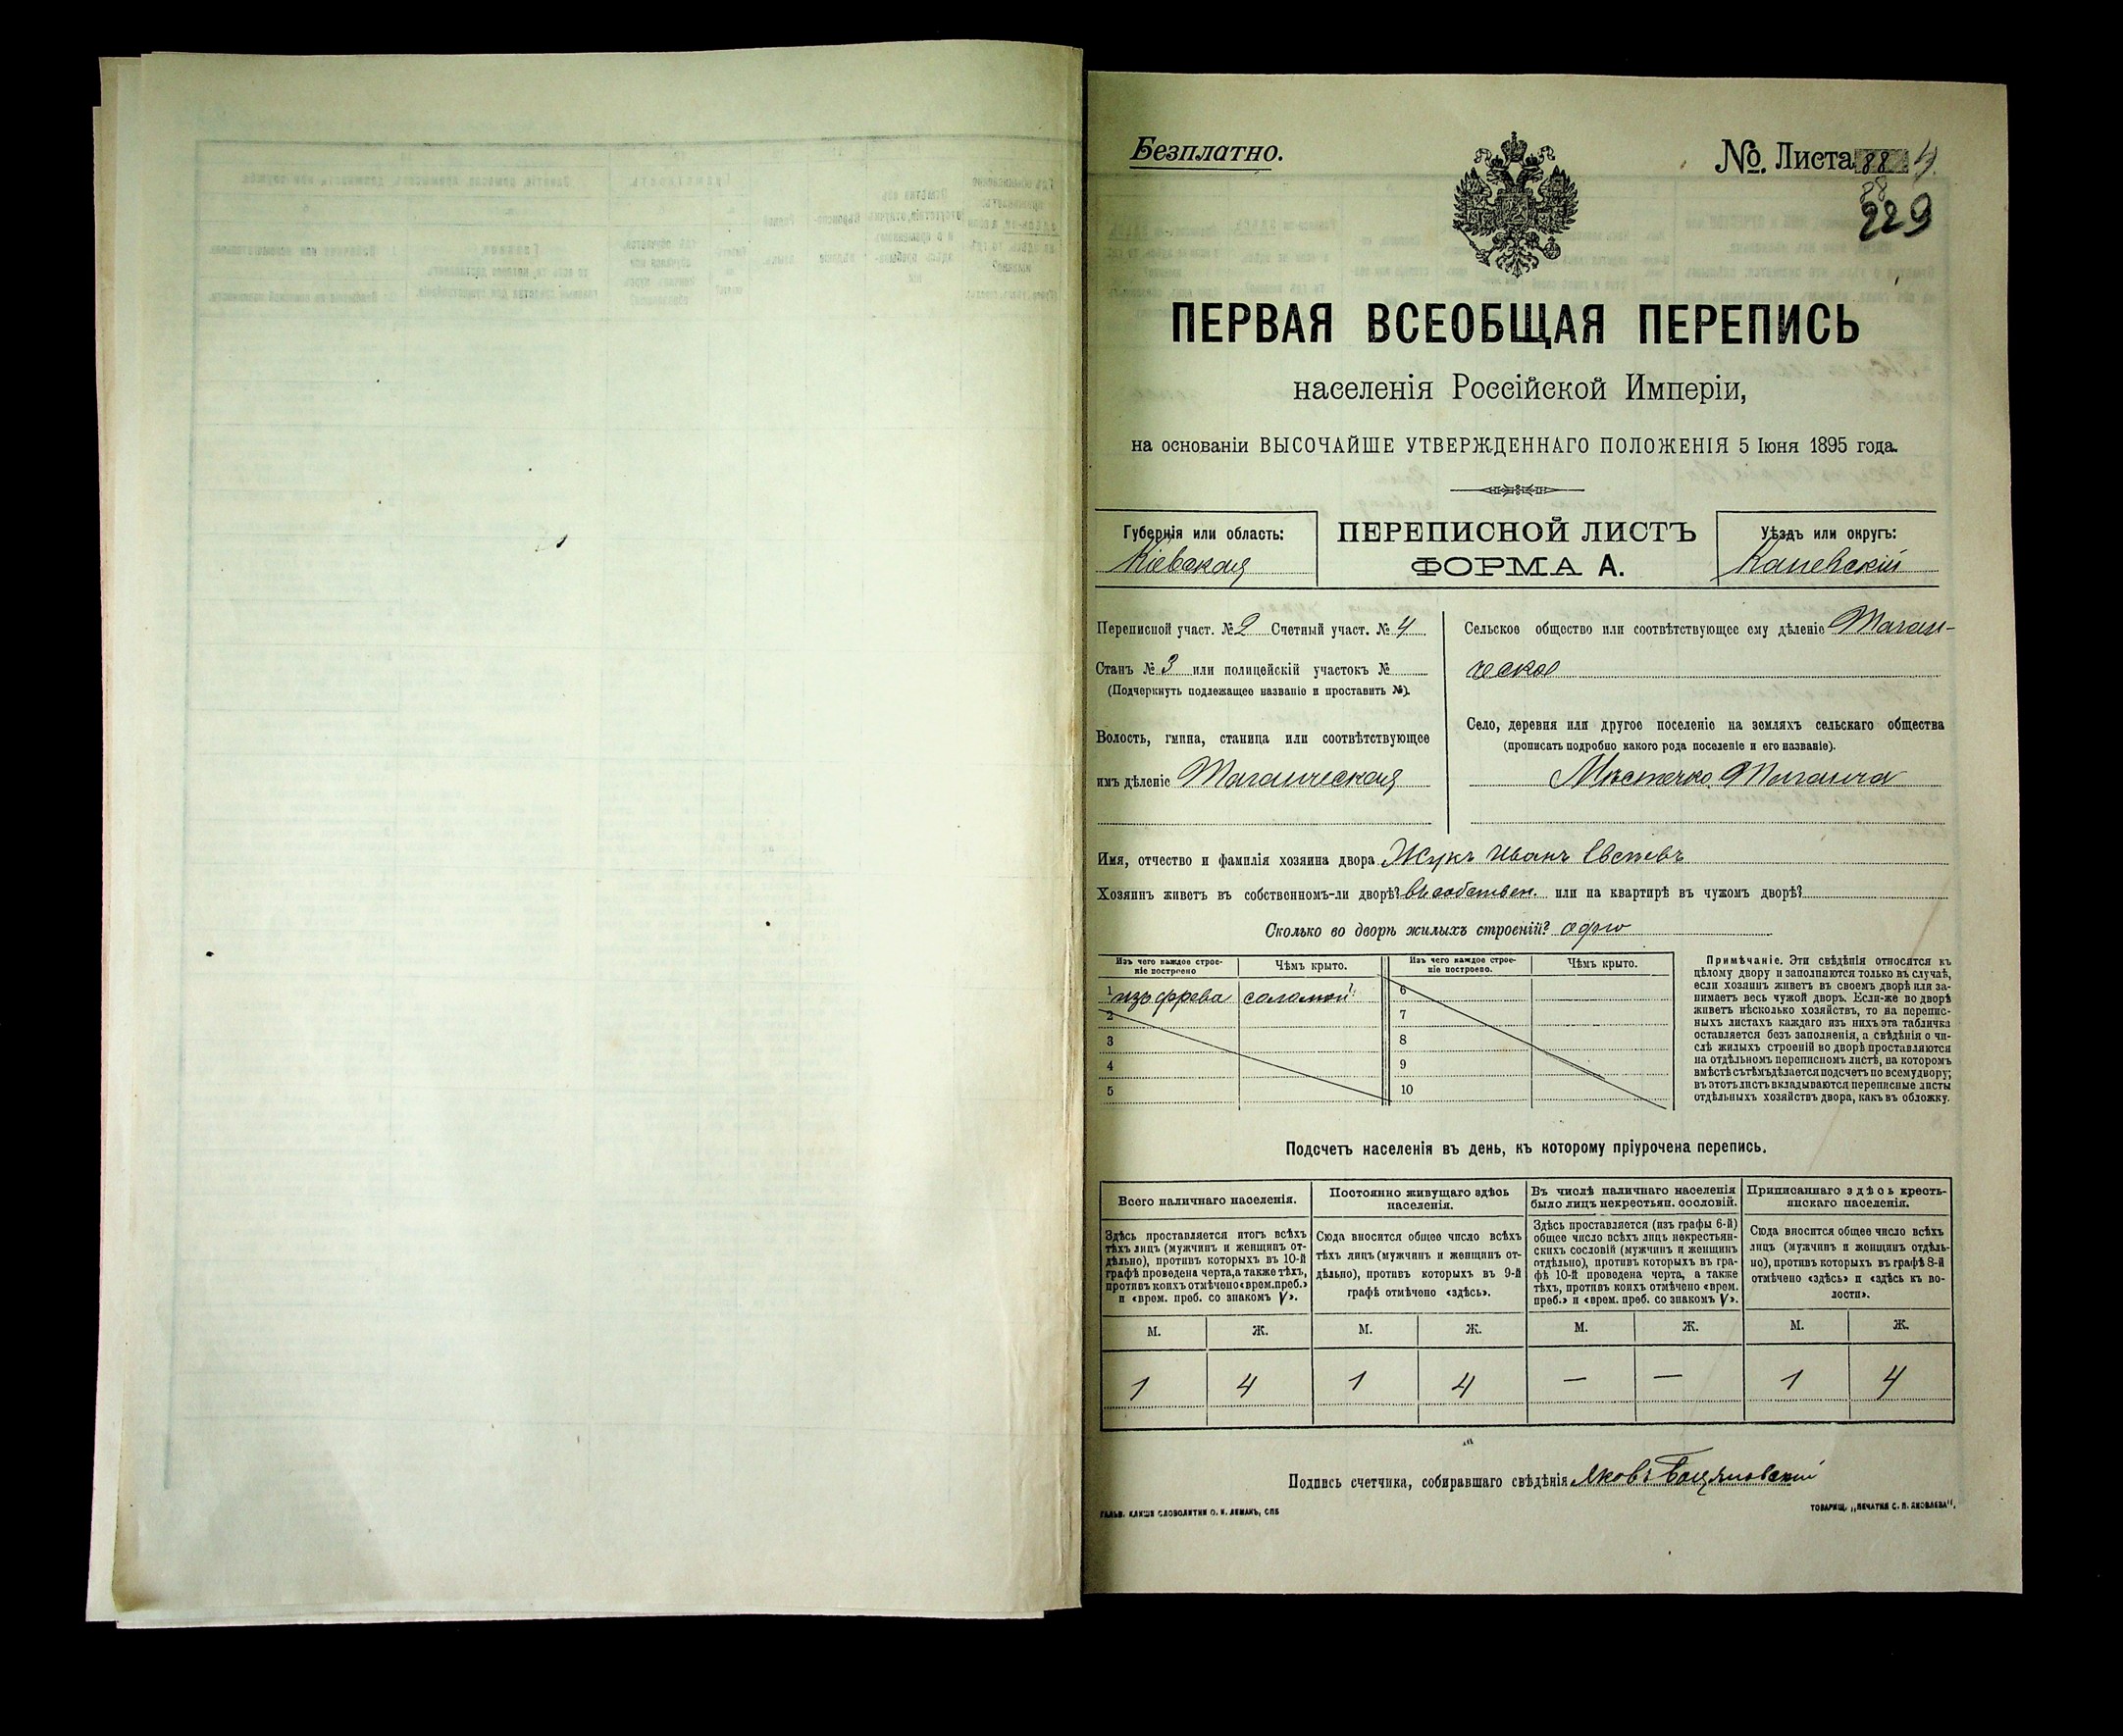 Безплатно.
№. Листа 88 4
88
229
ПЕРВАЯ ВСЕОБЩАЯ ПЕРЕПИСЬ
населенія Россійской Имперіи,
на основаніи ВЫСОЧАЙШЕ УТВЕРЖДЕННАГО ПОЛОЖЕНІЯ 5 Іюня 1895 года.
Губернія или область:
Кіевская
ПЕРЕПИСНОЙ ЛИСТЪ
ФОРМА А.
Уѣздъ или округъ:
Каневскій
Переписной участ. № 2 Счетный участ. № 4
Станъ № 3 или полицейскій участокъ №
(Подчеркнуть подлежащее названіе и проставить №).
Волость, гмина, станица или соотвѣтствующее
имъ дѣленіе Таганческая
Сельское общество или соотвѣтствующее ему дѣленіе Таган-
ческое
Село, деревня или другое поселеніе на земляхъ сельскаго общества
(прописать подробно какого рода поселеніе и его названіе).
Мѣстечко Таганча
Имя, отчество и фамилія хозяина двора Жукъ Иванъ
Хозяинъ живетъ въ собственномъ-ли дворѣ? въ собствен. или на квартирѣ въ чужомъ дворѣ?
Сколько во дворѣ жилыхъ строеній? одно
Изъ чего каждое строе-
ніе построено
Чѣмъ крыто.
Изъ чего каждое строе-
ніе построено.
Чѣмъ крыто.
1 изъ древа соломой
2
3
4
5
6
7
8
9
10
Примѣчаніе. Эти свѣдѣнія относятся къ
цѣлому двору и заполняются только въ случаѣ,
если хозяинъ живетъ въ своемъ дворѣ или за-
нимаетъ весь чужой дворъ. Если-же во дворѣ
живетъ нѣсколько хозяйствъ, то на перепис-
ныхъ листахъ каждаго изъ нихъ эта табличка
оставляется безъ заполненія, а свѣдѣнія о чи-
слѣ жилыхъ строеній во дворѣ проставляются
на отдѣльномъ переписномъ листѣ, на которомъ
вмѣстѣ съ тѣмъ дѣлается подсчетъ по всему двору;
въ этотъ листъ вкладываются переписные листы
отдѣльныхъ хозяйствъ двора, какъ въ обложку.
Подсчетъ населенія въ день, къ которому пріурочена перепись.
Всего наличнаго населенія.
Здѣсь проставляется итогъ всѣхъ
тѣхъ лицъ (мужчинъ и женщинъ от-
дѣльно), противъ которыхъ въ 10-й
графѣ проведена черта, а также тѣхъ,
противъ коихъ отмѣчено «врем. преб.»
и «врем. преб. со знакомъ V».
Постоянно живущаго здѣсь
населенія.
Сюда вносится общее число всѣхъ
тѣхъ лицъ (мужчинъ и женщинъ от-
дѣльно), противъ которыхъ въ 9-й
графѣ отмѣчено «здѣсь».
Въ числѣ наличнаго населенія
было лицъ некрестьян. сословій.
Здѣсь проставляется (изъ графы 6-й)
общее число всѣхъ лицъ некрестьян-
скихъ сословій (мужчинъ и женщинъ
отдѣльно), противъ которыхъ въ гра-
фѣ 10-й проведена черта, а также
тѣхъ, противъ коихъ отмѣчено «врем.
преб.» и «врем. преб. со знакомъ V».
Приписаннаго здѣсь кресть-
янскаго населенія.
Сюда вносится общее число всѣхъ
лицъ (мужчинъ и женщинъ отдѣль-
но), противъ которыхъ въ графѣ 8-й
отмѣчено «здѣсь» и «здѣсь къ во-
лости».
М. Ж. М. Ж. М. Ж. М. Ж.
1 4 1 4 — — 1 4
Подпись счетчика, собиравшаго свѣдѣнія Яковъ
ГАЛЬВ. КЛИШЕ СЛОВОЛИТНИ О. И. ЛЕМАНЪ, СПБ
ТОВАРИЩ. „ПЕЧАТНЯ С. П. ЯКОВЛЕВА".